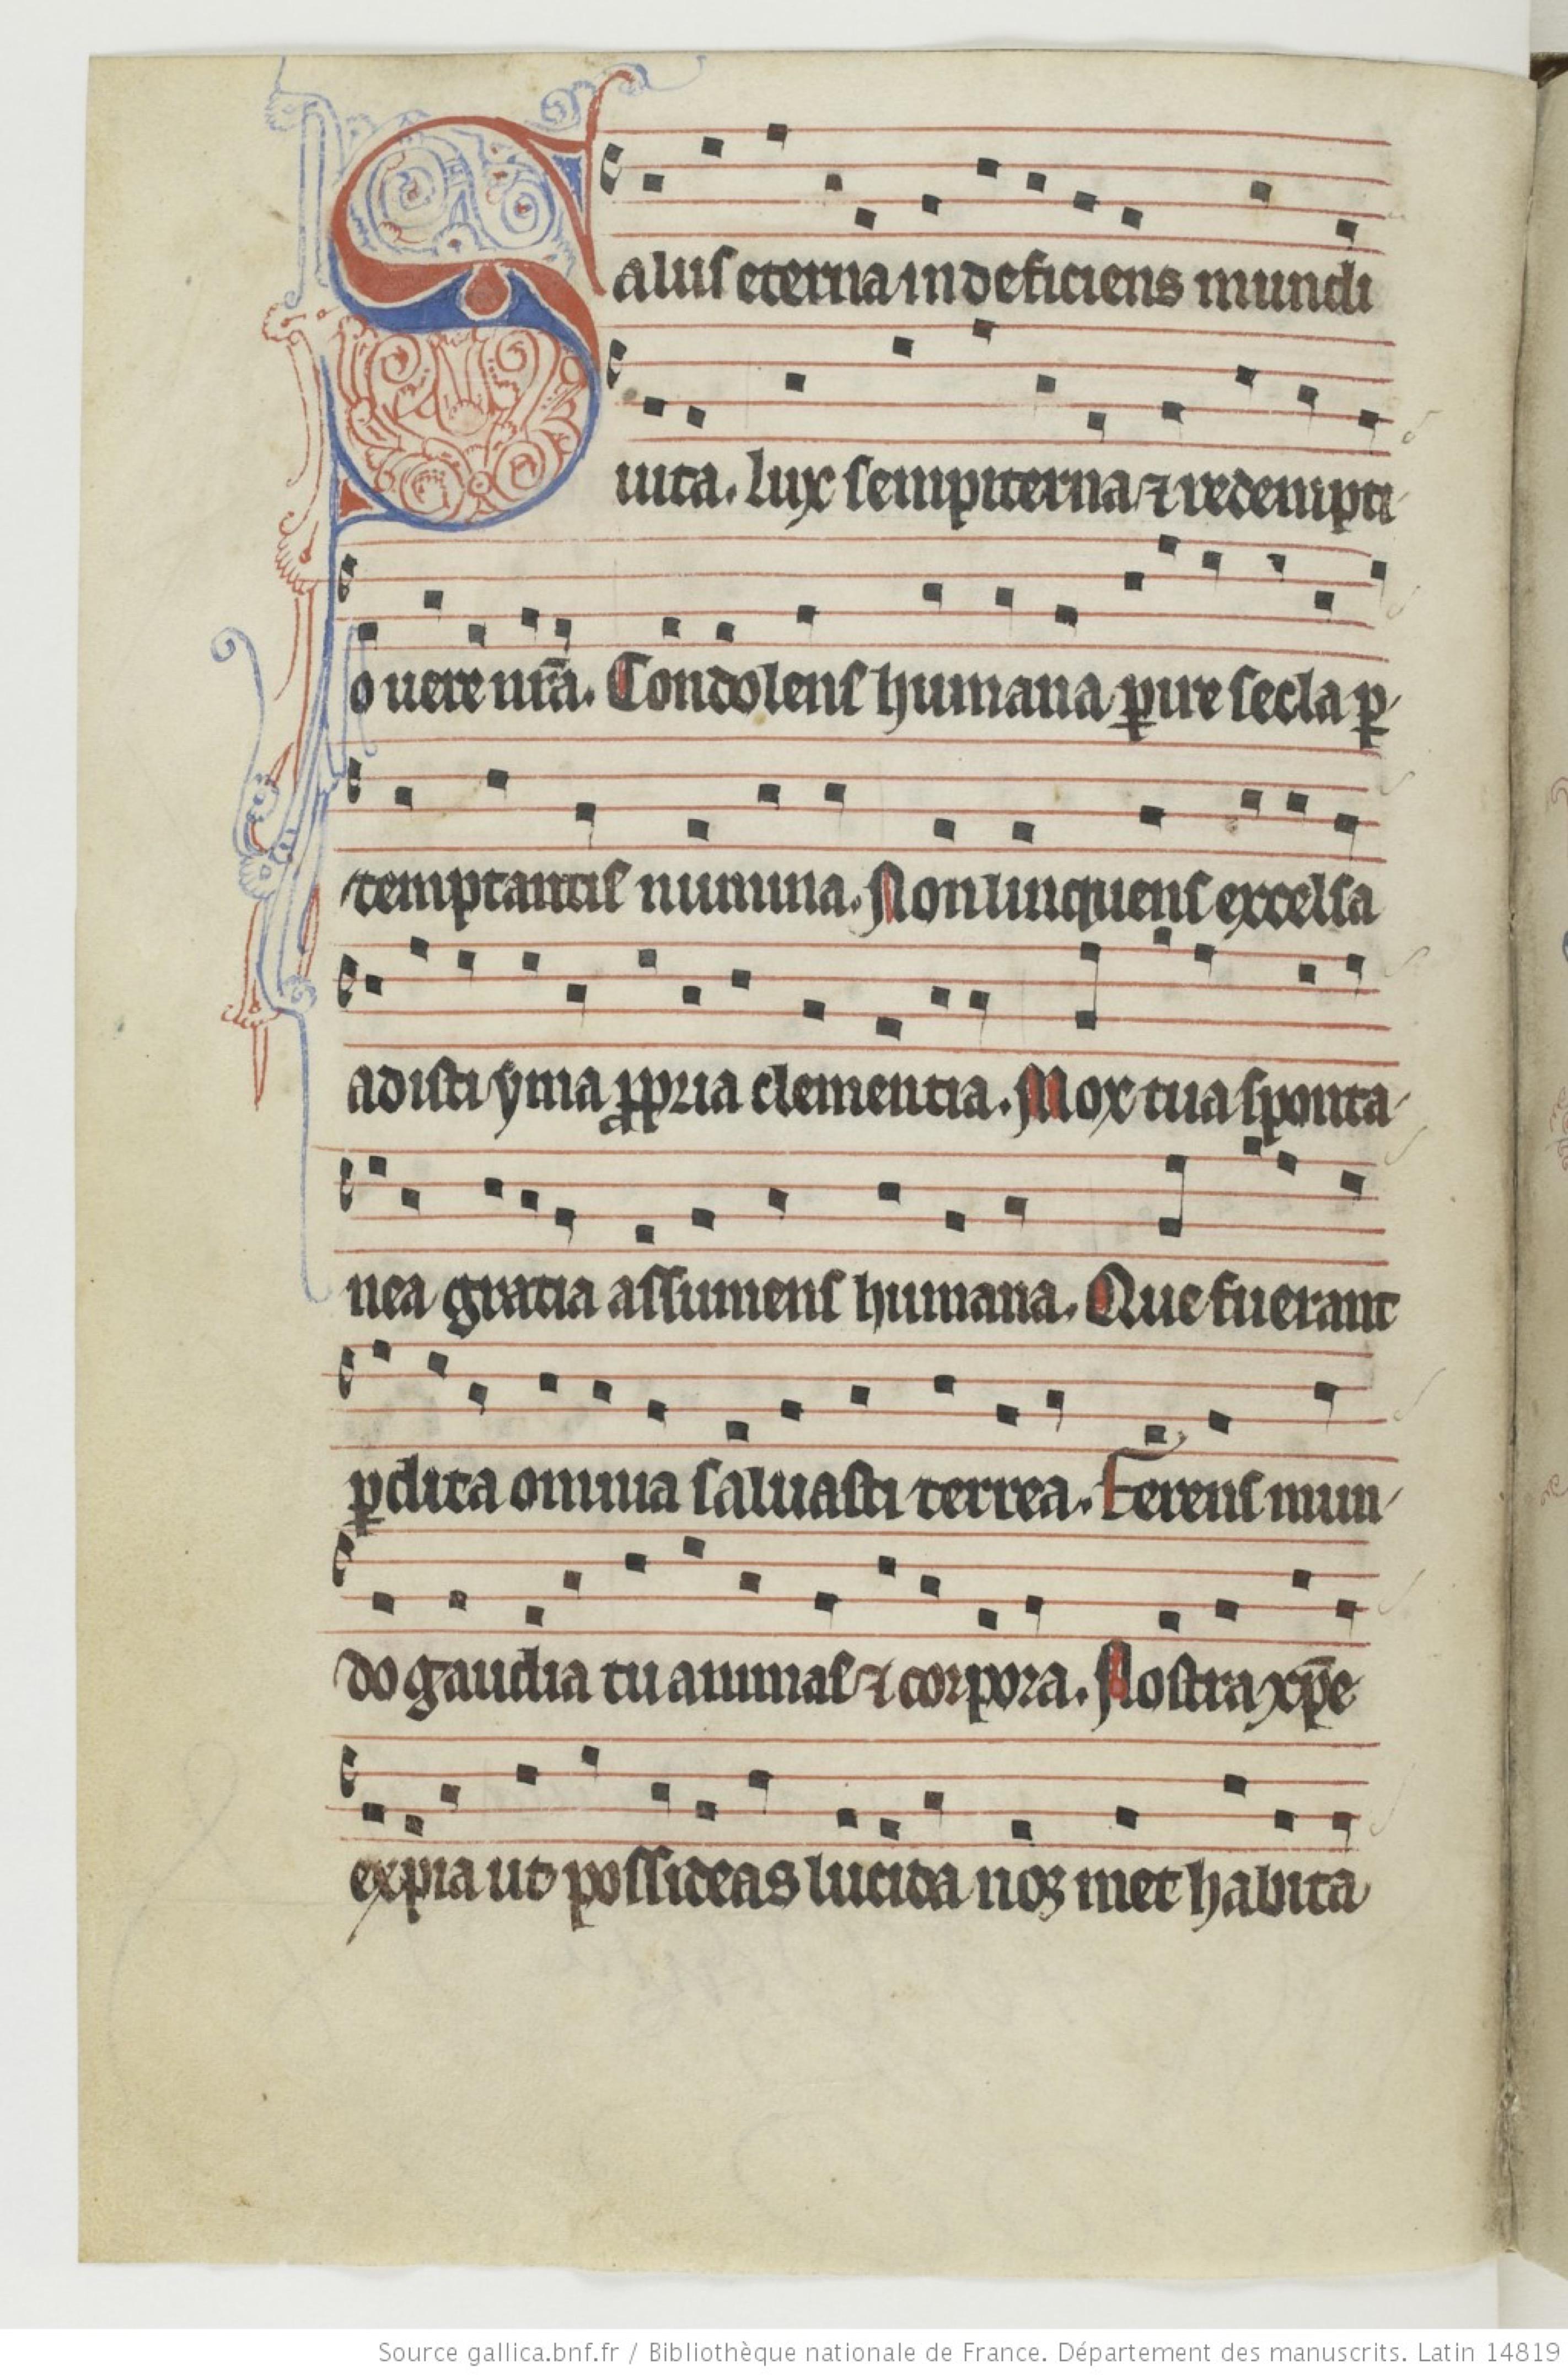 Salus eterna indeficiens mundi
uita. lux sempiterna ⁊ redempti
o uere nr̄a. Condolens humana ꝑire secla ꝑ
temptantis numina. Non linquens excelsa
adisti yma ꝓpria clementia. Mox tua sponta
nea gratia assumens humana. Que fuerant
ꝑdita omnia saluasti terrea. Ferens mun
do gaudia tu animas ⁊ corpora. Nostra xp̄e
expia ut possideas lucida nos met habita
Source gallica.bnf.fr / Bibliothèque nationale de France. Département des manuscrits. Latin 14819